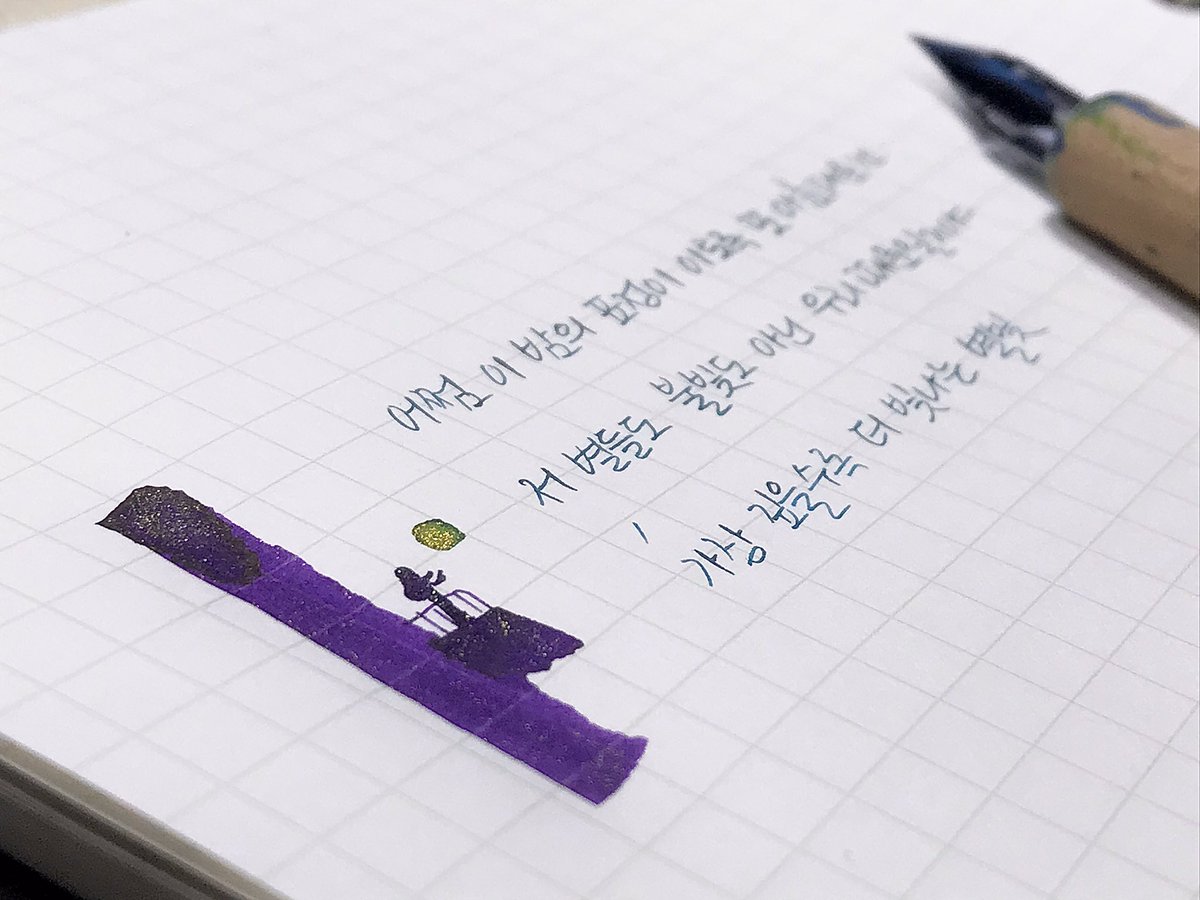 어쩜 이 밤의 표정이 이토록 또 아름다운 건
저 별들도 불빛도 아닌 우리 때문일 거야
가장 깊을수록 더 빛나는 별빛